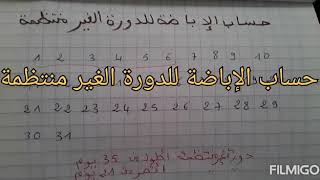 حساب الإباضة للدورة الغير منتظمة
1 2 3 4 5 6 7 8 9 10
حساب الإباضة للدورة الغير منتظمة
21 22 23 24 25 26 27 28 29
30 31
35 يوم
21 يوم
FILMIGO